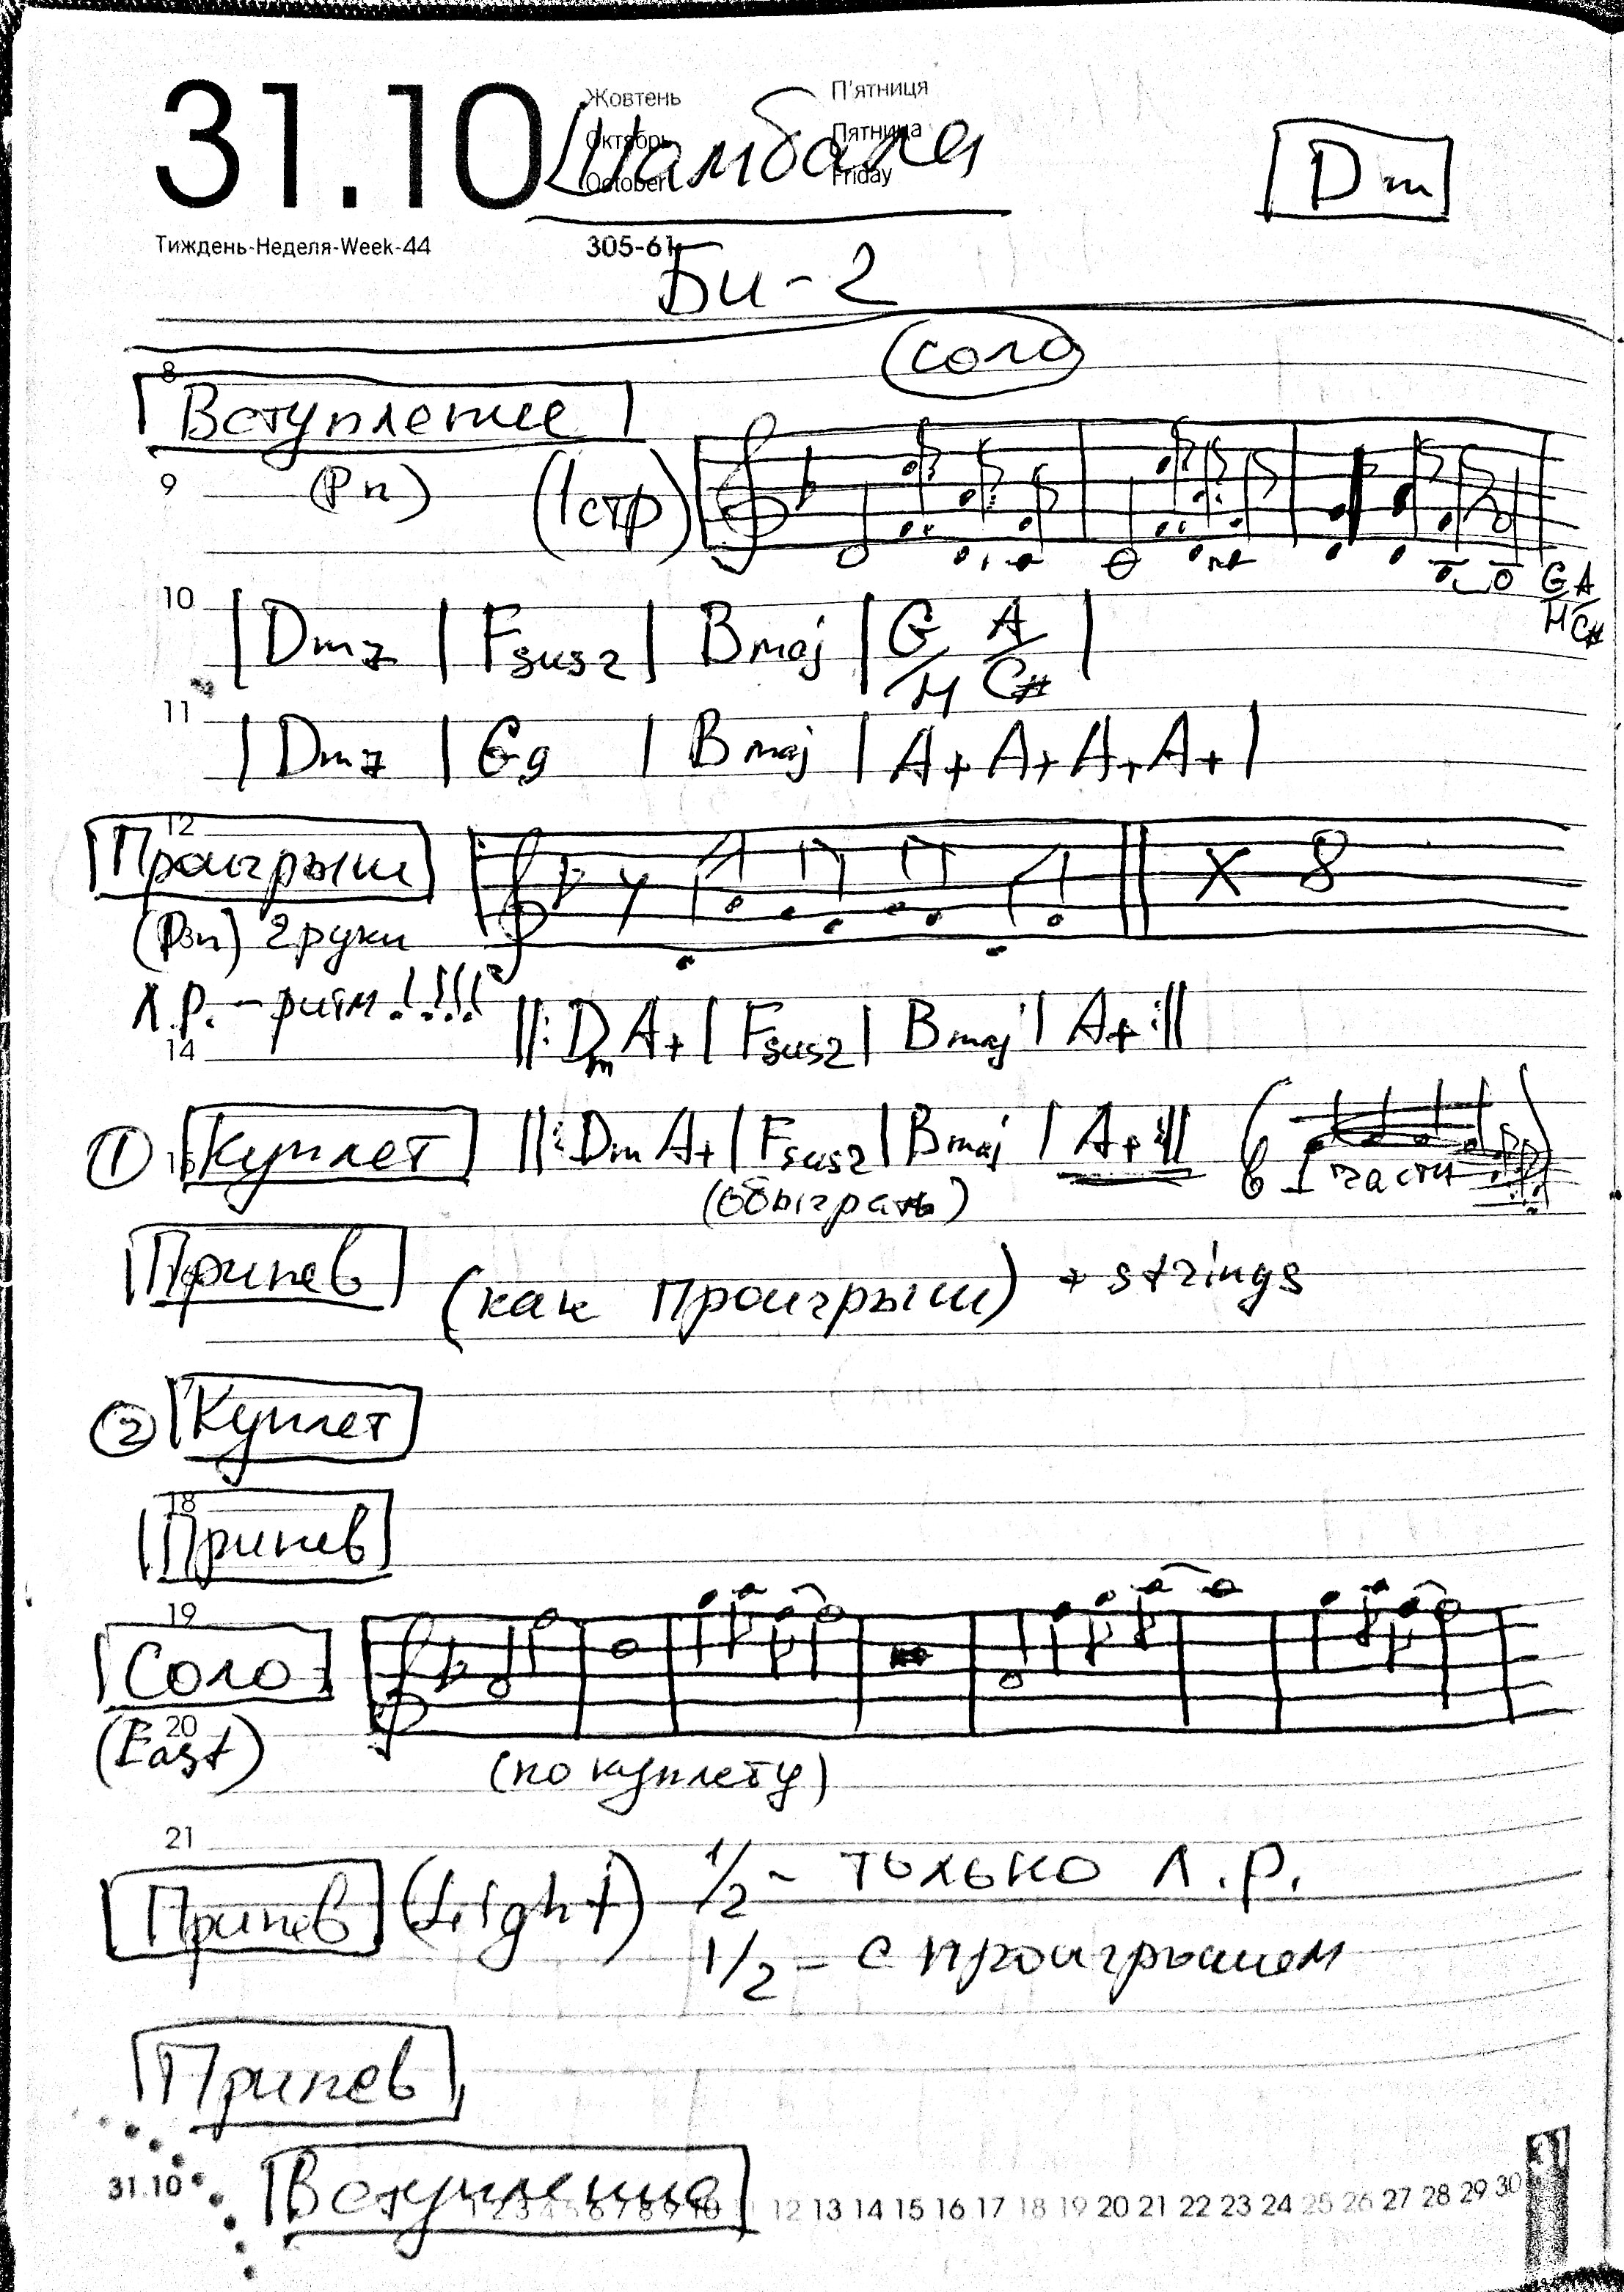 31.10
Жовтень П'ятниця
Октябрь Пятница
October Friday
Шамбала
Dm
Тиждень-Неделя-Week-44 305-61
Би-2
соло
8
Вступление
9 (Pn) (1стр)
G A
H C#
10
| Dm7 | Fsus2 | Bmaj | G/H A/C# |
11
| Dm7 | G9 | Bmaj | A+ A+ A+ A+ |
12
Проигрыш
x 8
(Pn) 2 руки
Л.Р. - ритм!!!!
14
||: Dm A+ | Fsus2 | Bmaj | A+ :||
① Куплет ||: Dm A+ | Fsus2 | Bmaj | A+ :|| (в I части)
(обыграть)
Припев (как Проигрыш) + strings
② Куплет
18
Припев
19
Соло
20
(East) (по куплету)
21
Припев (Light) 1/2 - только Л.Р.
1/2 - с проигрышем
Припев
Вступление
31.10 1 2 3 4 5 6 7 8 9 10 11 12 13 14 15 16 17 18 19 20 21 22 23 24 25 26 27 28 29 30